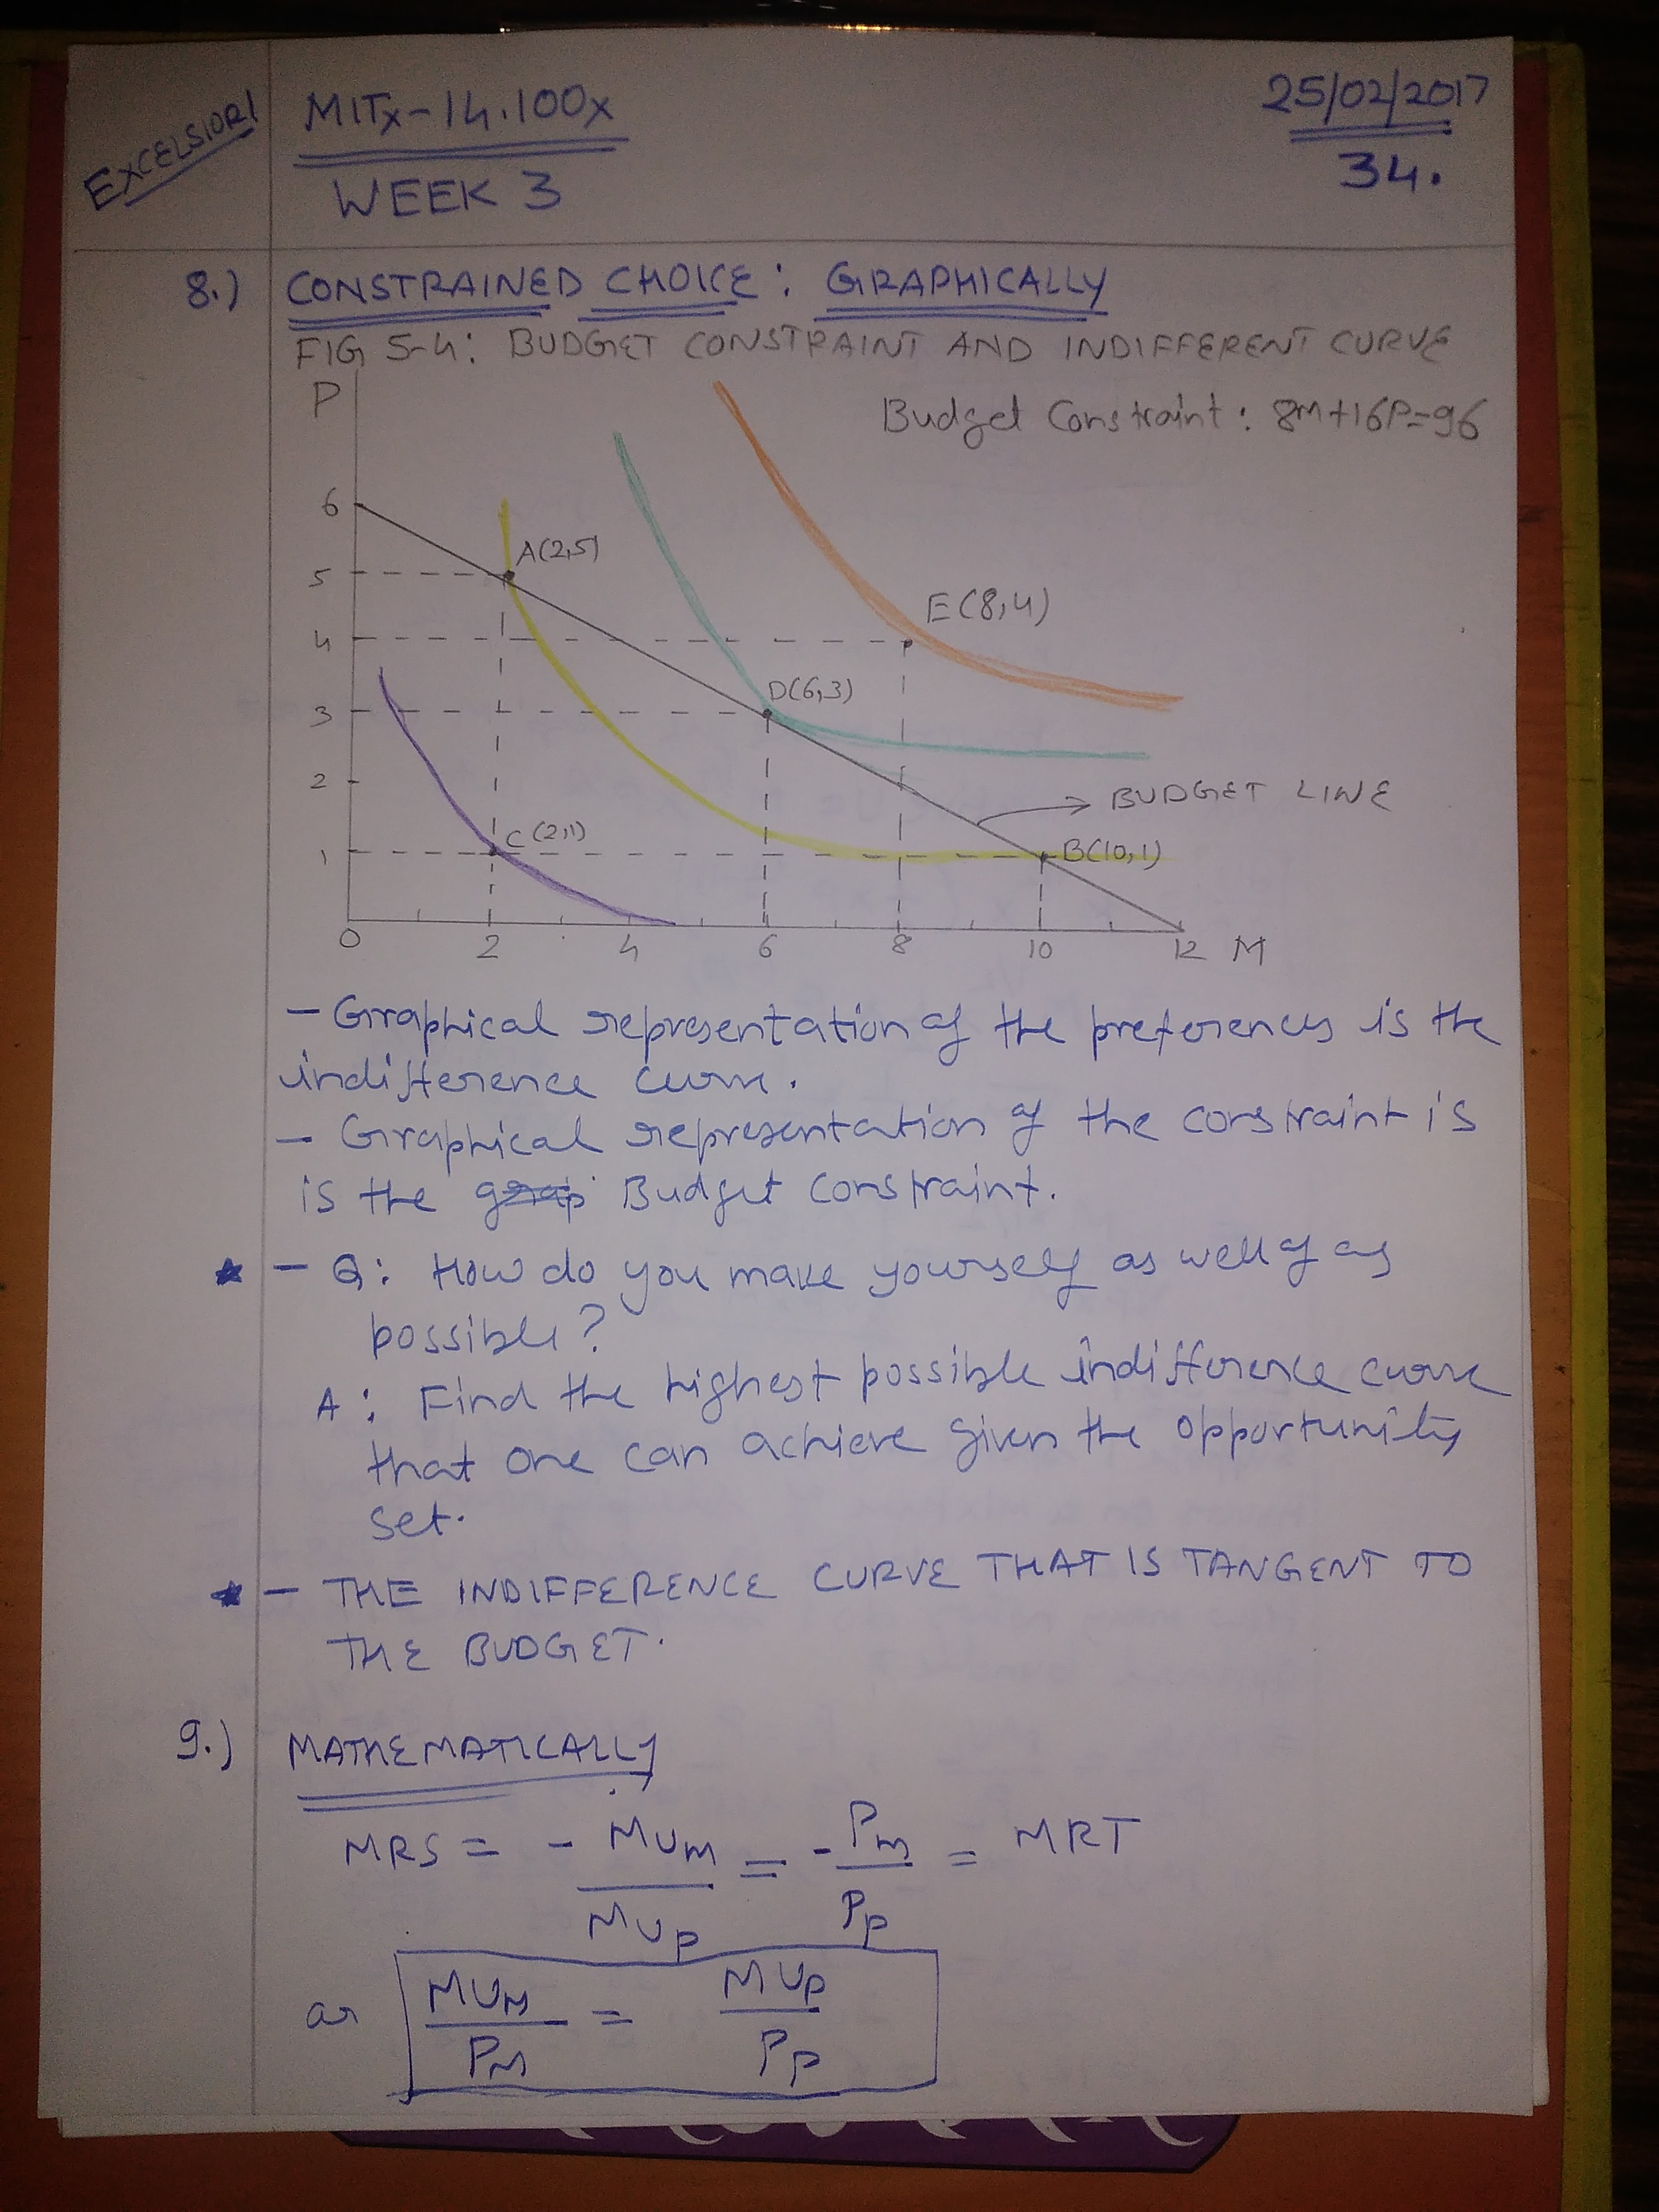 EXCELSIOR!
MITx-14.100x
25/02/2017
WEEK 3
34.
8.) CONSTRAINED CHOICE: GRAPHICALLY
FIG 5-4: BUDGET CONSTRAINT AND INDIFFERENT CURVE
P
Budget Constraint: 8M+16P=96
6
A(2,5)
5
E(8,4)
4
D(6,3)
3
2
BUDGET LINE
C(2,1)
1
B(10,1)
0 2 4 6 8 10 12 M
- Graphical representation of the preferences is the
indifference curve.
- Graphical representation of the constraint is
is the grap Budget Constraint.
★ - Q: How do you make yourself as well of as
possible?
A: Find the highest possible indifference curve
that one can achieve given the opportunity
set.
★ - THE INDIFFERENCE CURVE THAT IS TANGENT TO
THE BUDGET.
9.) MATHEMATICALLY
MRS = - MUm/MUp = - Pm/Pp = MRT
or MUM/PM = MUP/PP